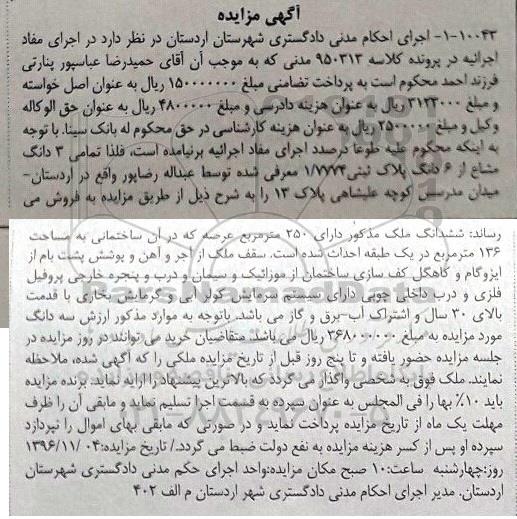 آگهی مزایده
۱۰۰۴۳-۱- اجرای احکام مدنی دادگستری شهرستان اردستان در نظر دارد در اجرای مفاد
اجرائیه در پرونده کلاسه ۹۵۰۳۱۳ مدنی که به موجب آن آقای حمیدرضا عباسپور پنارتی
فرزند احمد محکوم است به پرداخت تضامنی مبلغ ۱۵۰۰۰۰۰۰۰ ریال به عنوان اصل خواسته
و مبلغ ۳۱۲۳۰۰۰ ریال به عنوان هزینه دادرسی و مبلغ ۴۸۰۰۰۰۰ ریال به عنوان حق الوکاله
وکیل و مبلغ ۲۵۰۰۰۰۰ ریال به عنوان هزینه کارشناسی در حق محکوم له بانک سینا. با توجه
به اینکه محکوم علیه طوعا درصدد اجرای مفاد اجرائیه برنیامده است، فلذا تمامی ۳ دانگ
مشاع از ۶ دانگ پلاک ثبتی ۱/۷۷۷۴ معرفی شده توسط عبداله رضاپور واقع در اردستان-
میدان مدرسس کوچه علیشاهی پلاک ۱۳ را به شرح ذیل از طریق مزایده به فروش می
رساند: ششدانگ ملک مذکور دارای ۲۵۰ مترمربع عرصه که در آن ساختمانی به مساحت
۱۳۶ مترمربع در یک طبقه احداث شده است. سقف ملک از آجر و آهن و پوشش پشت بام از
ایزوگام و کاهگل کف سازی ساختمان از موزائیک و سیمان و درب و پنجره خارجی پروفیل
فلزی و درب داخلی چوبی دارای سیستم سرمایش کولر آبی و گرمایش بخاری با قدمت
بالای ۳۰ سال و اشتراک آب-برق و گاز می باشد. باتوجه به موارد مذکور ارزش سه دانگ
مورد مزایده به مبلغ ۳۶۸۰۰۰۰۰۰ ریال می باشد. متقاضیان خرید می توانند در روز مزایده در
جلسه مزایده حضور یافته و تا پنج روز قبل از تاریخ مزایده ملکی را که آگهی شده، ملاحظه
نمایند. ملک فوق به شخصی واگذار می گردد که بالاترین پیشنهاد را ارایه نماید. برنده مزایده
باید ۱۰٪ بها را فی المجلس به عنوان سپرده به قسمت اجرا تسلیم نماید و مابقی آن را ظرف
مهلت یک ماه از تاریخ مزایده پرداخت نماید و در صورتی که مابقی بهای اموال را نپردازد
سپرده او پس از کسر هزینه مزایده به نفع دولت ضبط می گردد./ تاریخ مزایده:۱۳۹۶/۱۱/۰۴
روز:چهارشنبه ساعت:۱۰ صبح مکان مزایده:واحد اجرای حکم مدنی دادگستری شهرستان
اردستان. مدیر اجرای احکام مدنی دادگستری شهر اردستان م الف ۴۰۲